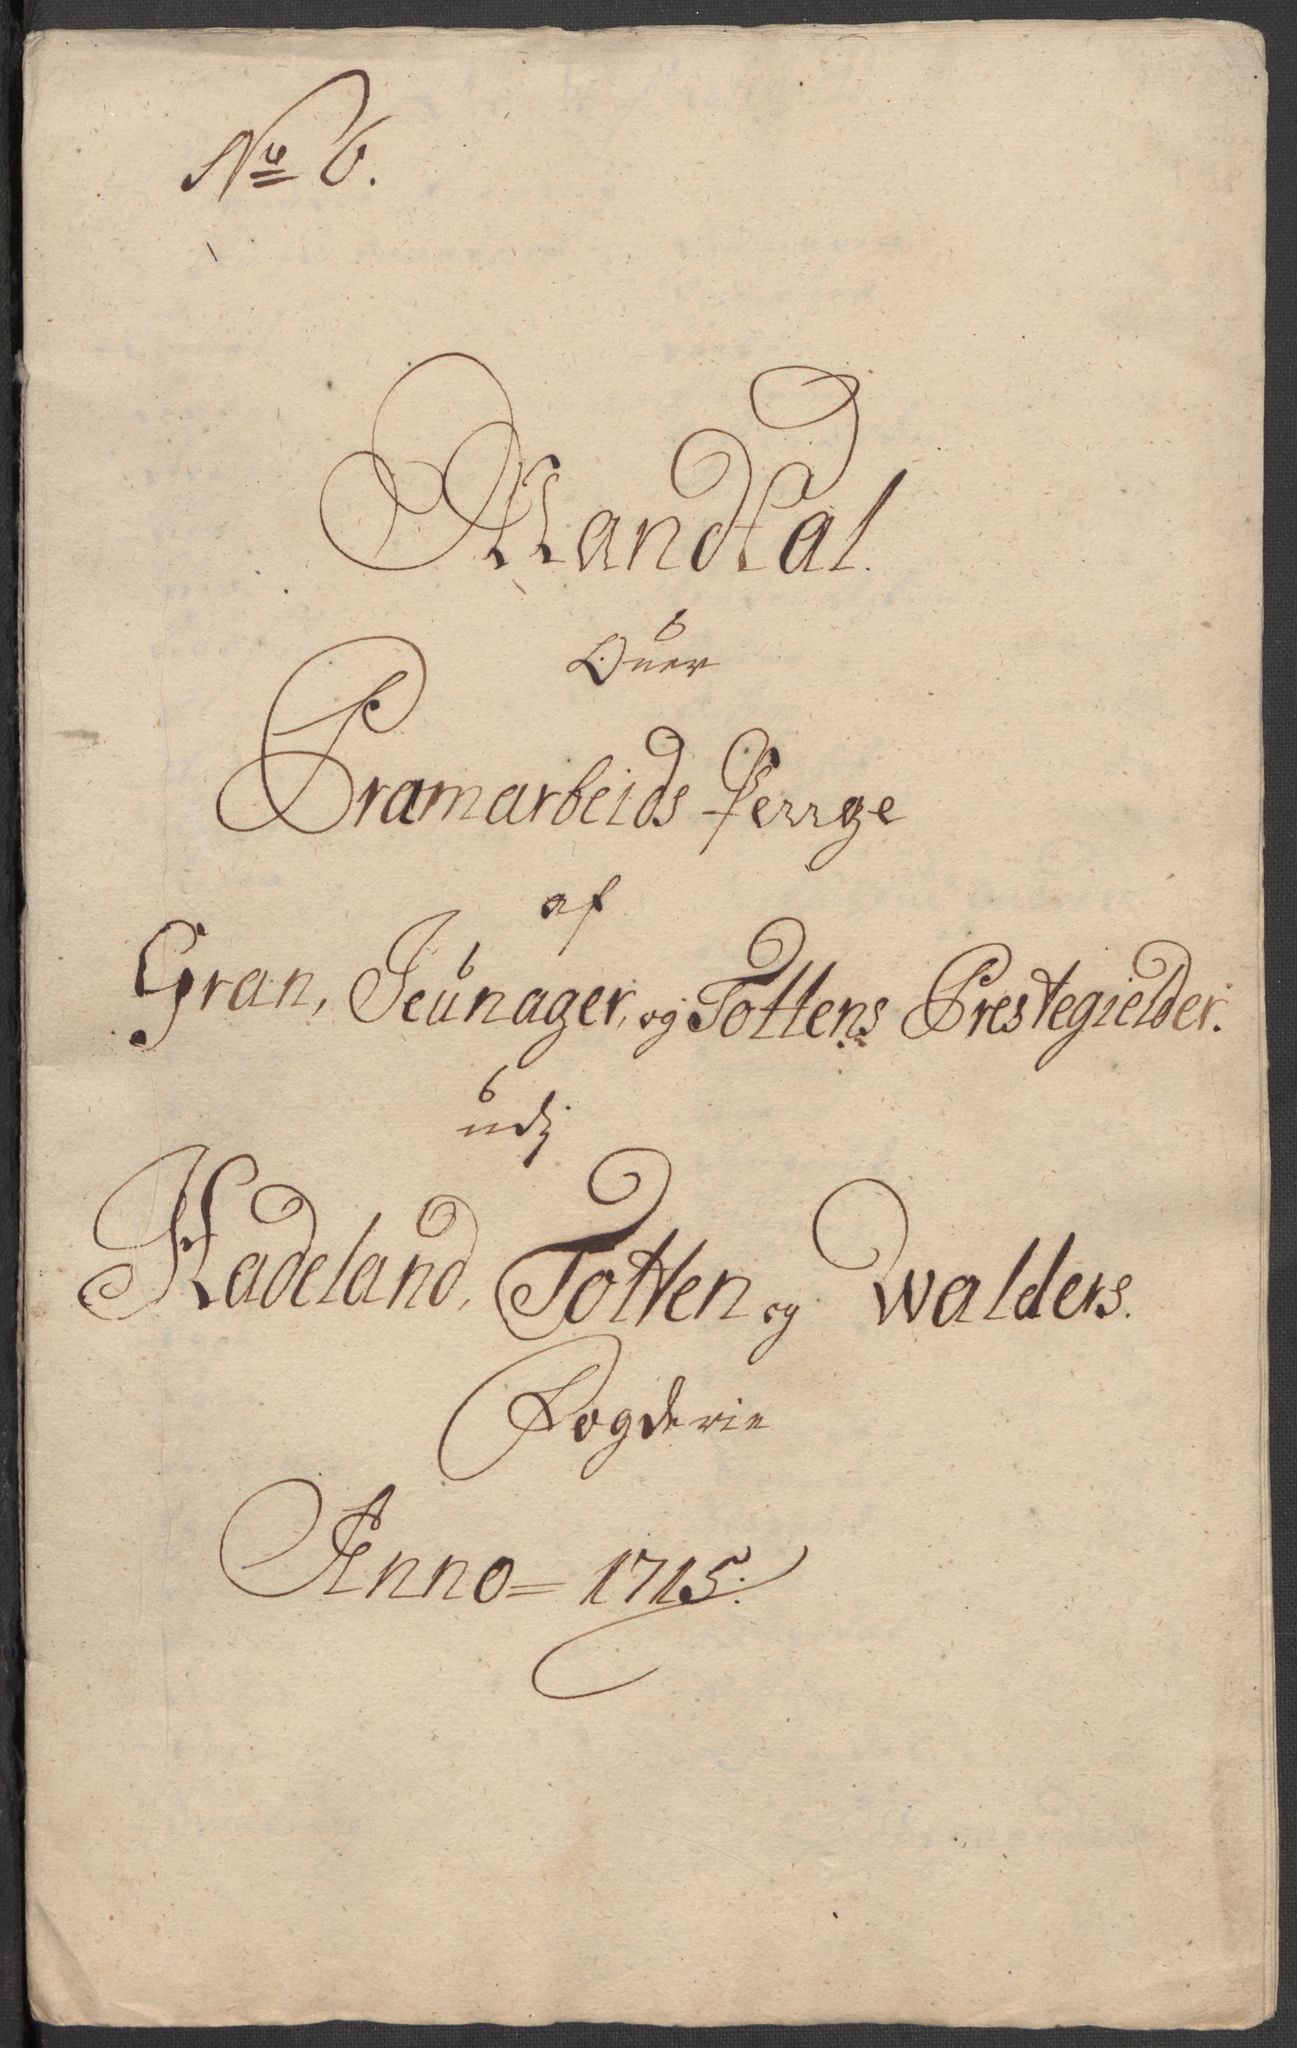 No 6.
Mandtal
Ouer
Pramarbeids Penge
af
Gran, Jeunager, og Tottens Prestegielder.
udj
Hadeland, Totten og Walders.
Fogderie
Anno = 1715.